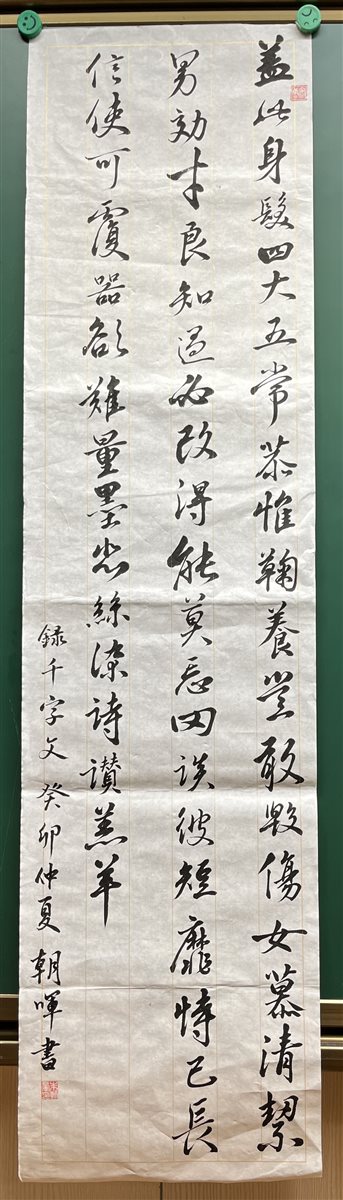 盖此身髮四大五常恭惟鞠養豈敢毀傷女慕清絜
男効才良知過必改得能莫忘罔談彼短靡恃己長
信使可覆器欲難量墨悲絲染詩讃羔羊
録千字文 癸卯仲夏 朝暉書